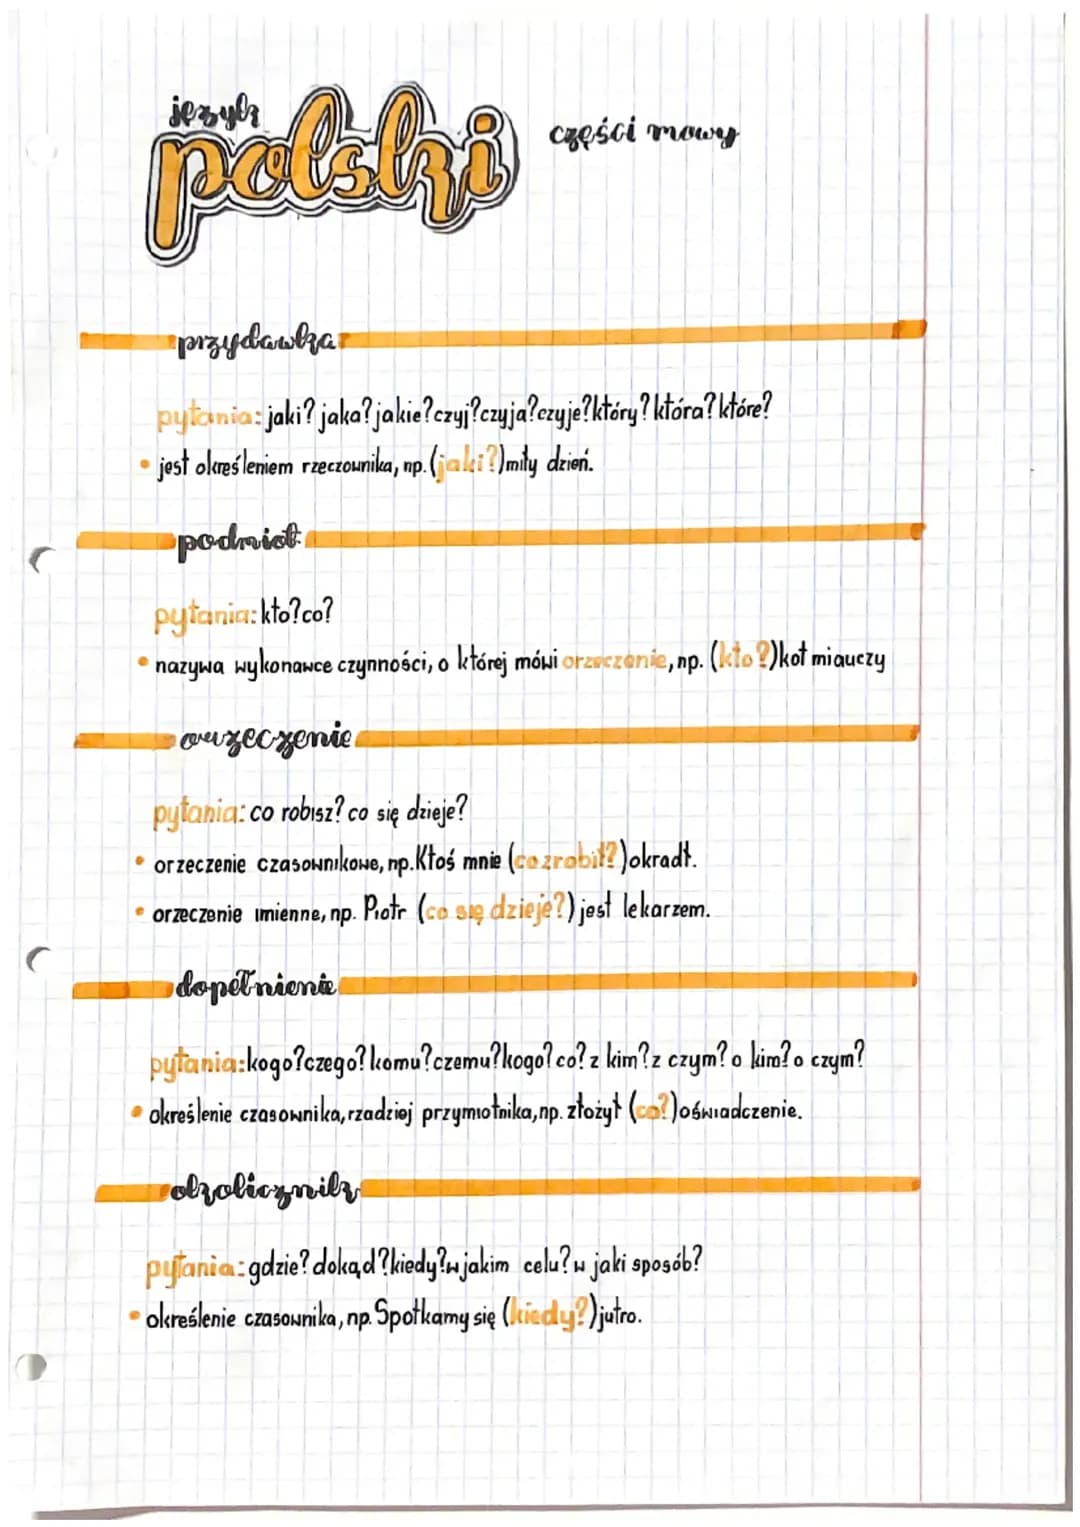 język
polski
części mowy
przydawka
pytania: jaki? jaka? jakie? czyj? czyja? czyje? który? która? które?
• jest określeniem rzeczownika, np. (jaki?) miły dzień.
podmiot
pytania: kto? co?
• nazywa wykonawce czynności, o której mówi orzeczenie, np. (kto?) kot miauczy
orzeczenie
pytania: co robisz? co się dzieje?
• orzeczenie czasownikowe, np. Ktoś mnie (co zrobił?) okradł.
• orzeczenie imienne, np. Piotr (co się dzieje?) jest lekarzem.
dopełnienie
pytania: kogo? czego? komu? czemu? kogo? co? z kim? z czym? o kim? o czym?
• określenie czasownika, rzadziej przymiotnika, np. złożył (co?) oświadczenie.
okolicznik
pytania: gdzie? dokąd? kiedy? w jakim celu? w jaki sposób?
• określenie czasownika, np. Spotkamy się (kiedy?) jutro.